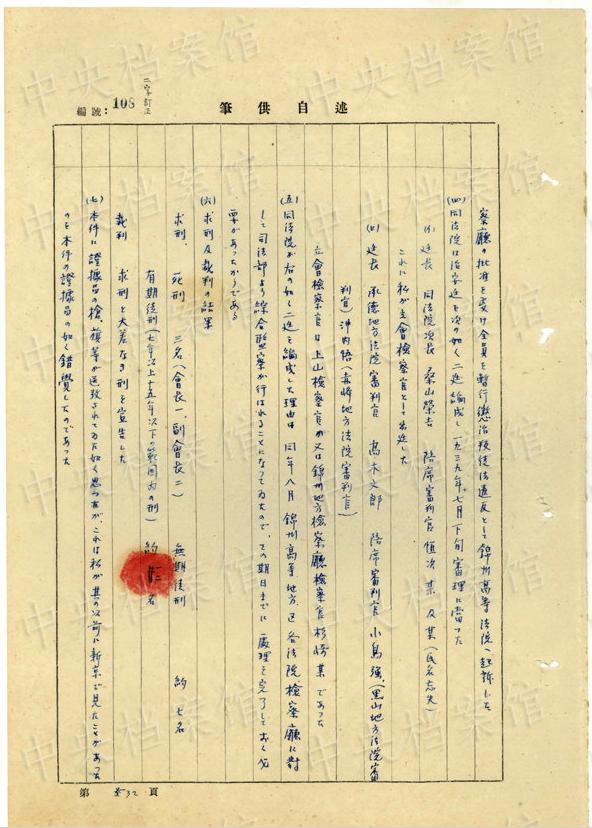 筆供自述
編號:108
二字訂正
察廳の批准を受け全員を暫行懲治叛徒法違反として錦州高等法院へ起訴した
(四)同法院は治安廷を次の如く二廷編成し一九三九年七月下旬審理に當った
(イ)廷長 同法院次長 桑山榮吉 陪席審判官 恒次某 及某(氏名忘失)
これに私が立會檢察官として出廷した
(ロ)廷長 承德地方法院審判官 高木文郎 陪席審判官 小島強(黑山地方法院審
判官)沖内悟(赤峰地方法院審判官)
立會檢察官は上山檢察官か又は錦州地方檢察廳檢察官杉崎某であった
(五)同法院が右の如く二廷を編成した理由は 同年八月 錦州高等地方、区各法院檢察廳に對
して司法部より綜合監察が行はれることになってゐたので、その期日までに處理を完了して置く必
要があったからである
(六)求刑及裁判の結果
求刑、 死刑 三名(會長一、副會長二) 無期徒刑 約七名
有期徒刑(七年以上十五年以下の範囲内の刑) 約 名
裁判 求刑と大差なき刑を宣告した
(七)本件に證據品の槍、旗等が送致されてゐた如く思ったが、これは私が其の以前に新京で見たことがあった
のを本件の證據品の如く錯覺したのであった
第 32 頁
中央档案馆